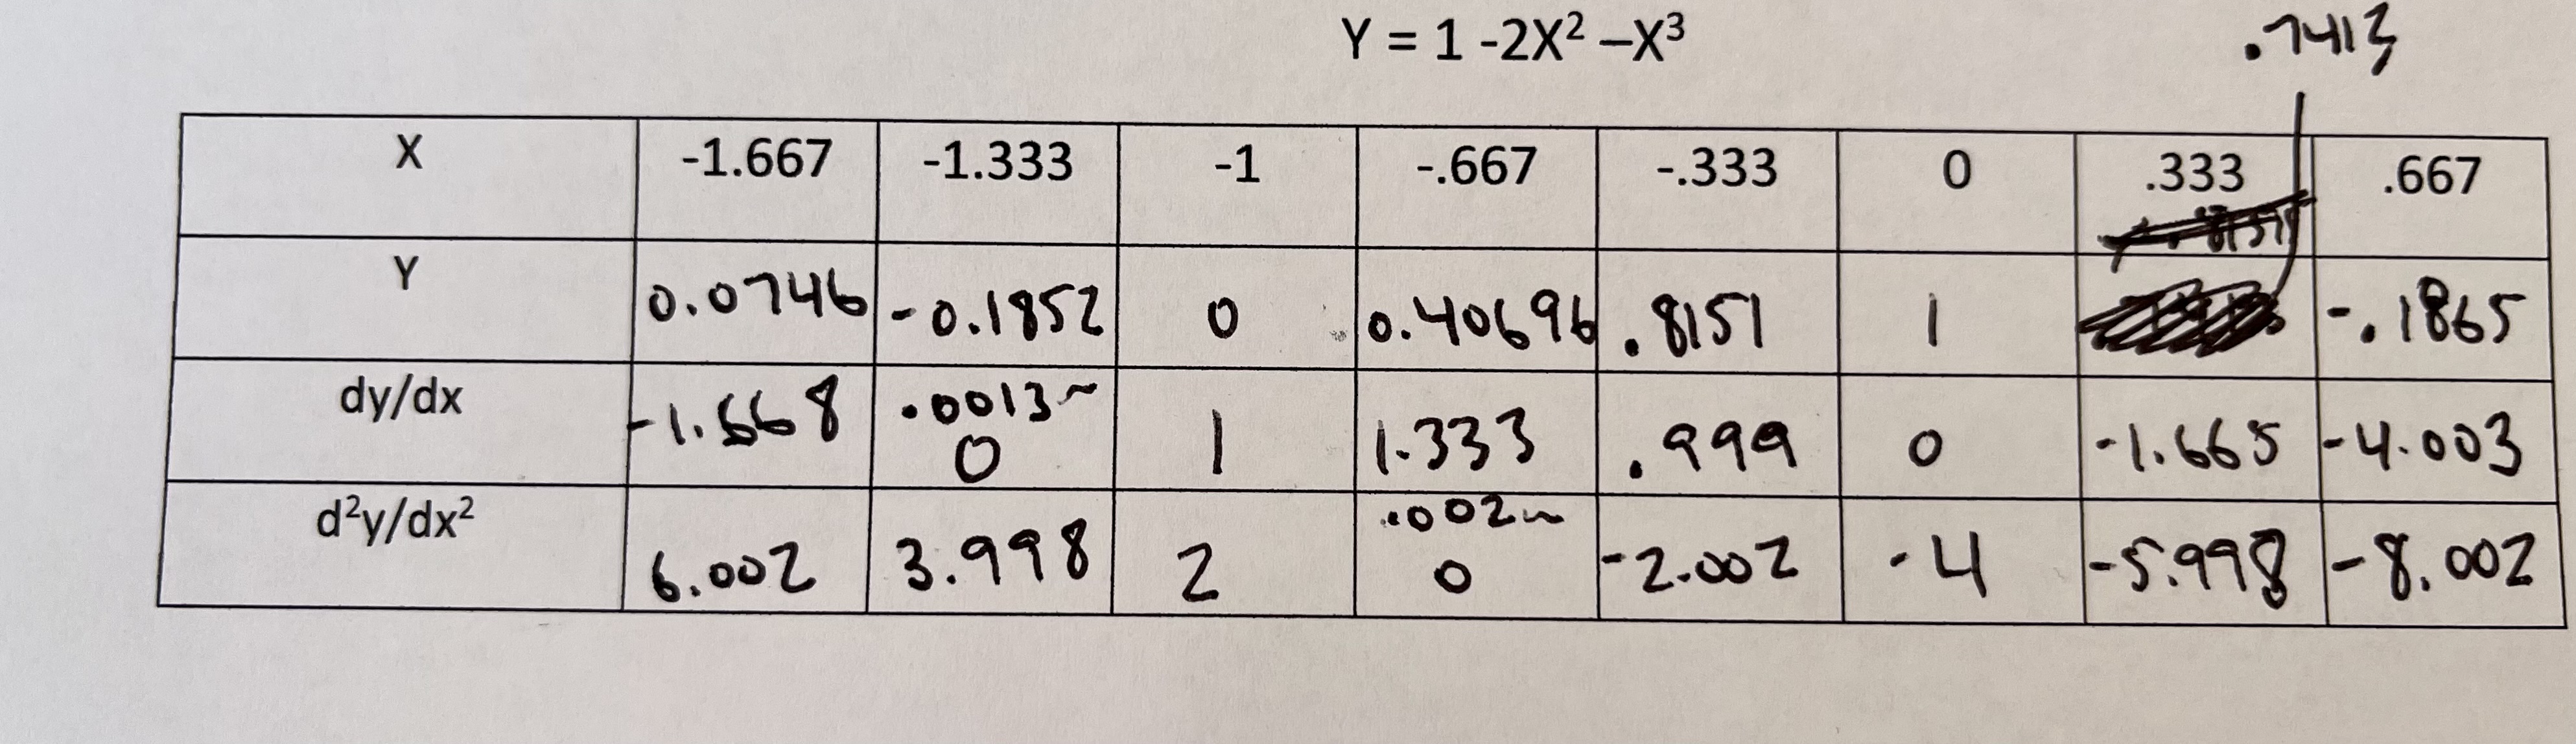 Y = 1 -2X² –X³
.7413
X -1.667 -1.333 -1 -.667 -.333 0 .333 .667
Y 0.0746 -0.1852 0 0.40696 .8151 1 -.1865
dy/dx -1.668 .0013~ 0 1 1.333 .999 0 -1.665 -4.003
d²y/dx² 6.002 3.998 2 .002~ 0 -2.002 -4 -5.998 -8.002